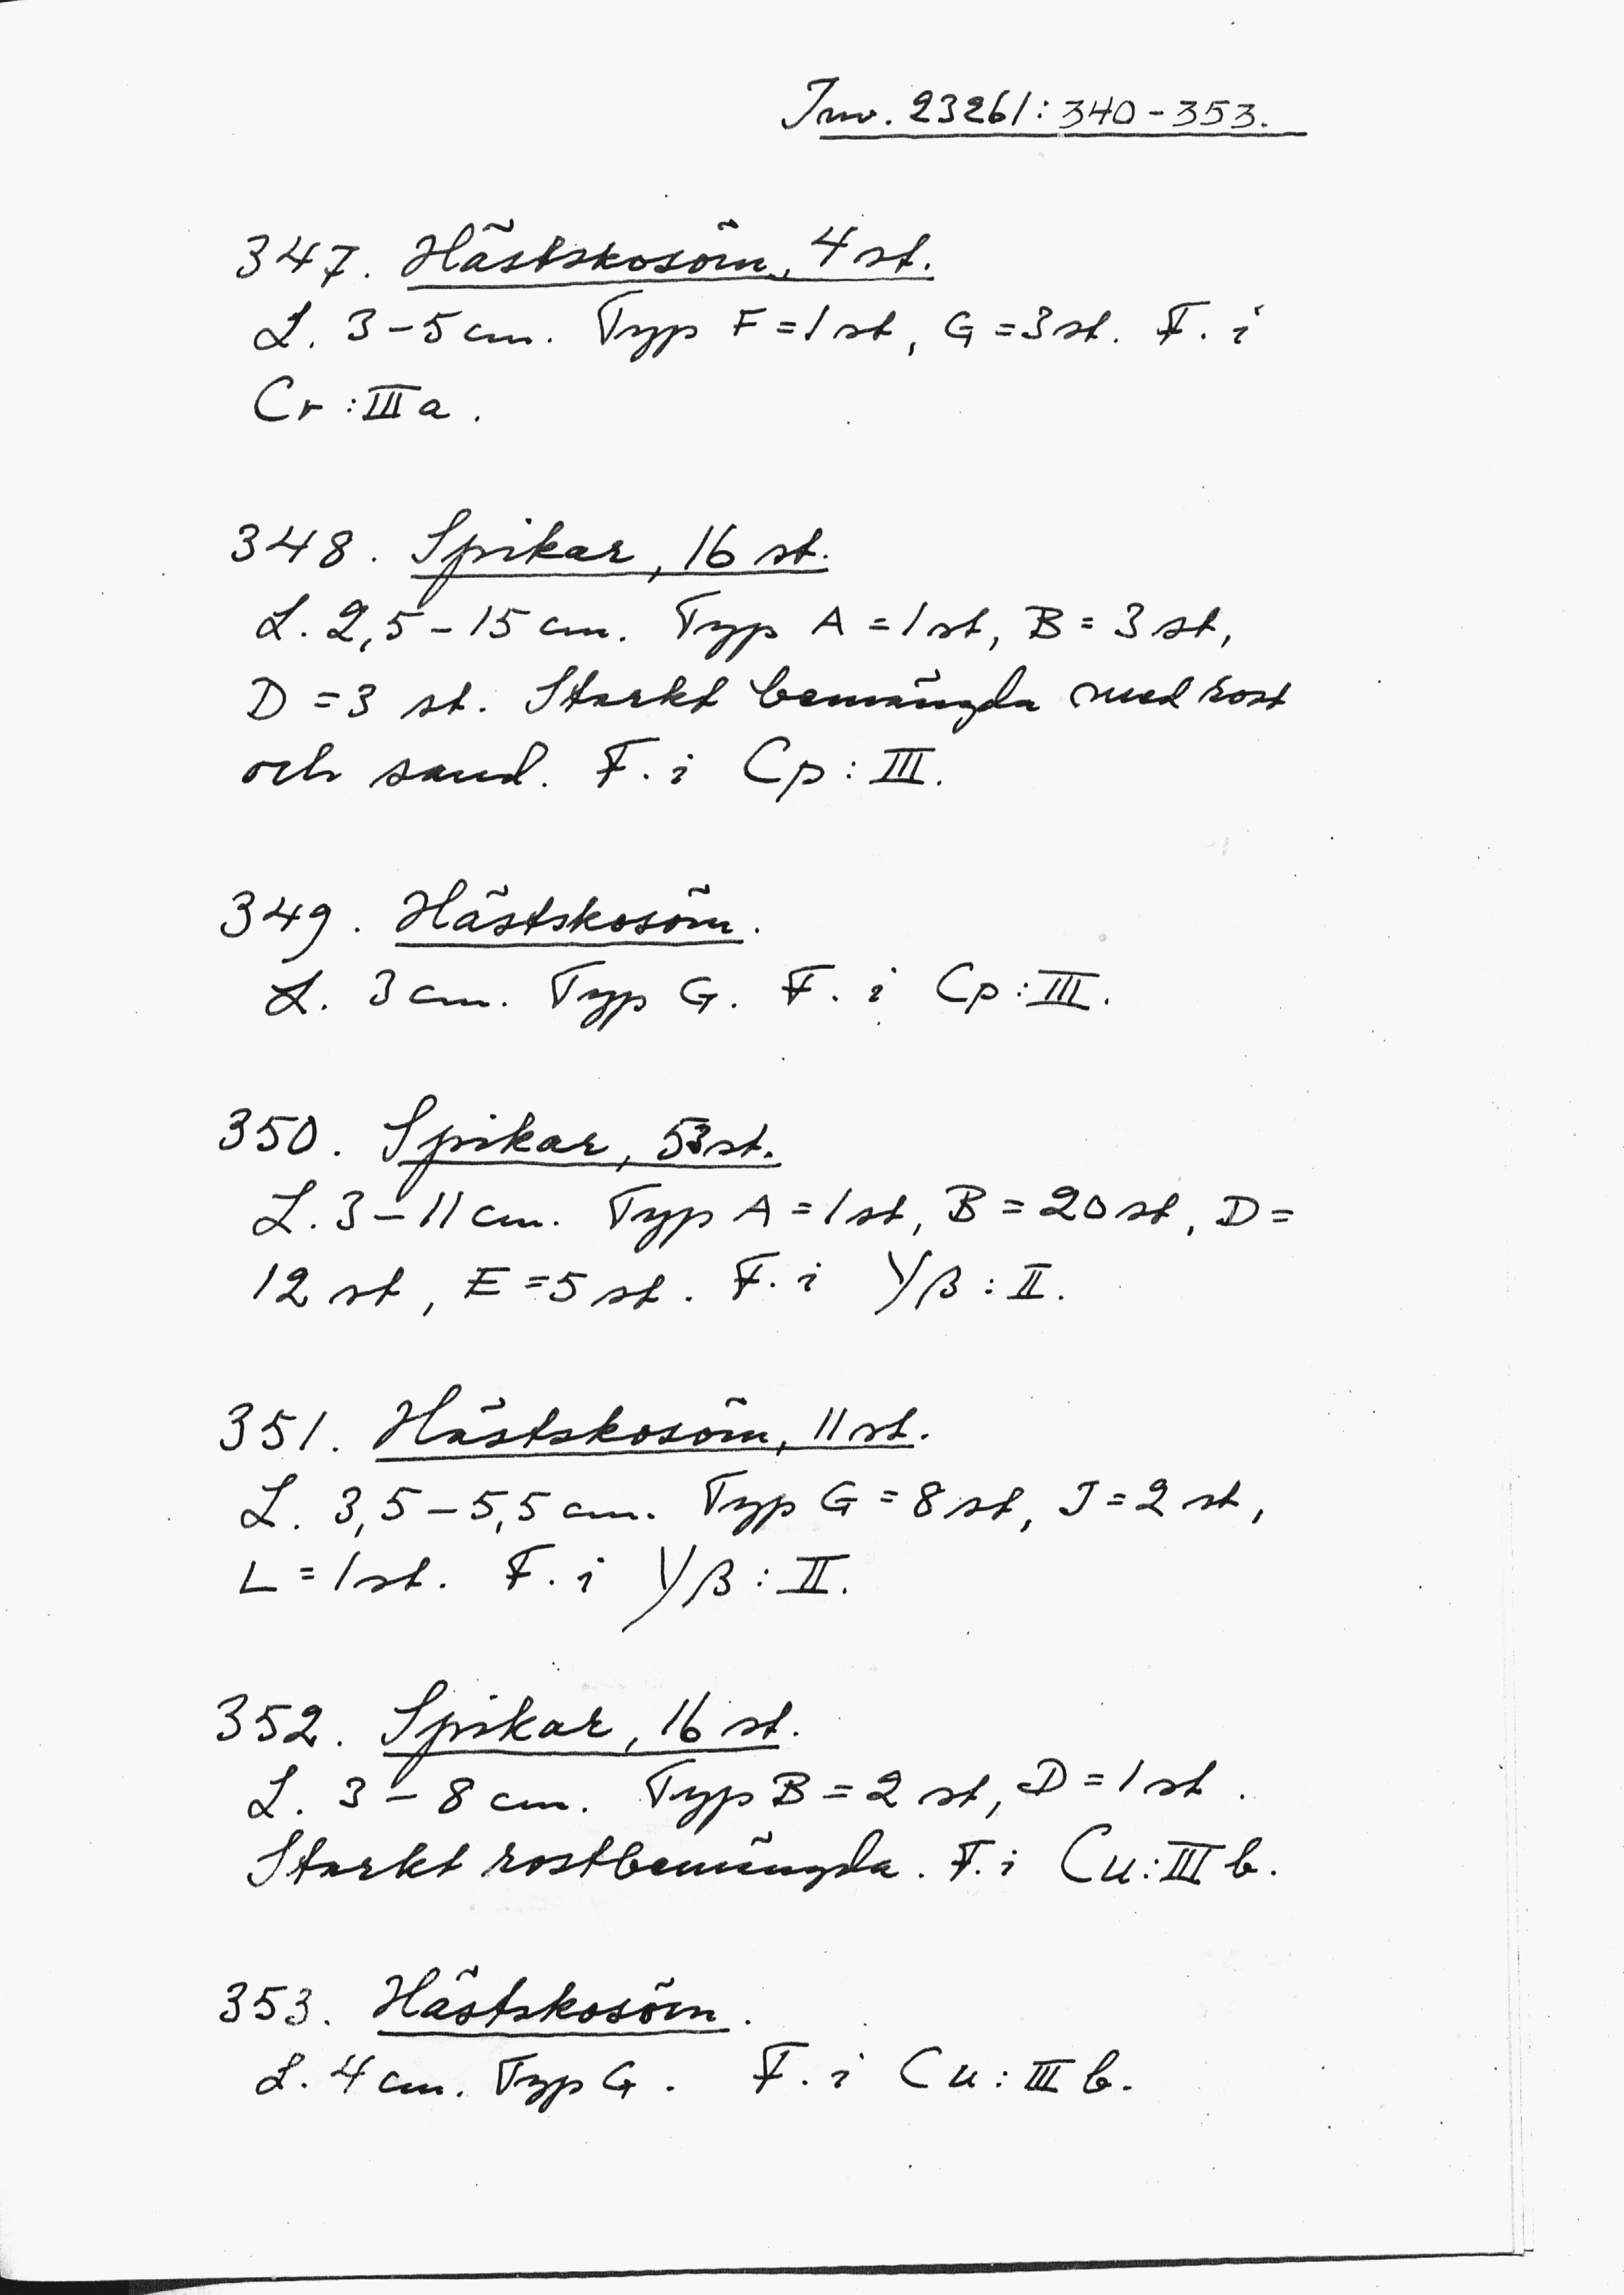 Inv. 23261:340-353.
347. Hästskosöm, 4 st.
L. 3-5 cm. Typ F=1 st, G=3 st. F. i
Cr:IIIa.
348. Spikar, 16 st.
L. 2,5-15 cm. Typ A=1 st, B=3 st,
D=3 st. Starkt bemängda med rost
och sand. F. i Cp:III.
349. Hästskosöm.
L. 3 cm. Typ G. F. i Cp:III.
350. Spikar, 53 st.
L. 3-11 cm. Typ A=1 st, B=20 st, D=
12 st, E=5 st. F. i Yβ:II.
351. Hästskosöm, 11 st.
L. 3,5-5,5 cm. Typ G=8 st, J=2 st,
L=1 st. F. i Yβ:II.
352. Spikar, 16 st.
L. 3-8 cm. Typ B=2 st, D=1 st.
Starkt rostbemängda. F. i Cu:IIIb.
353. Hästskosöm.
L. 4 cm. Typ G. F. i Cu:IIIb.